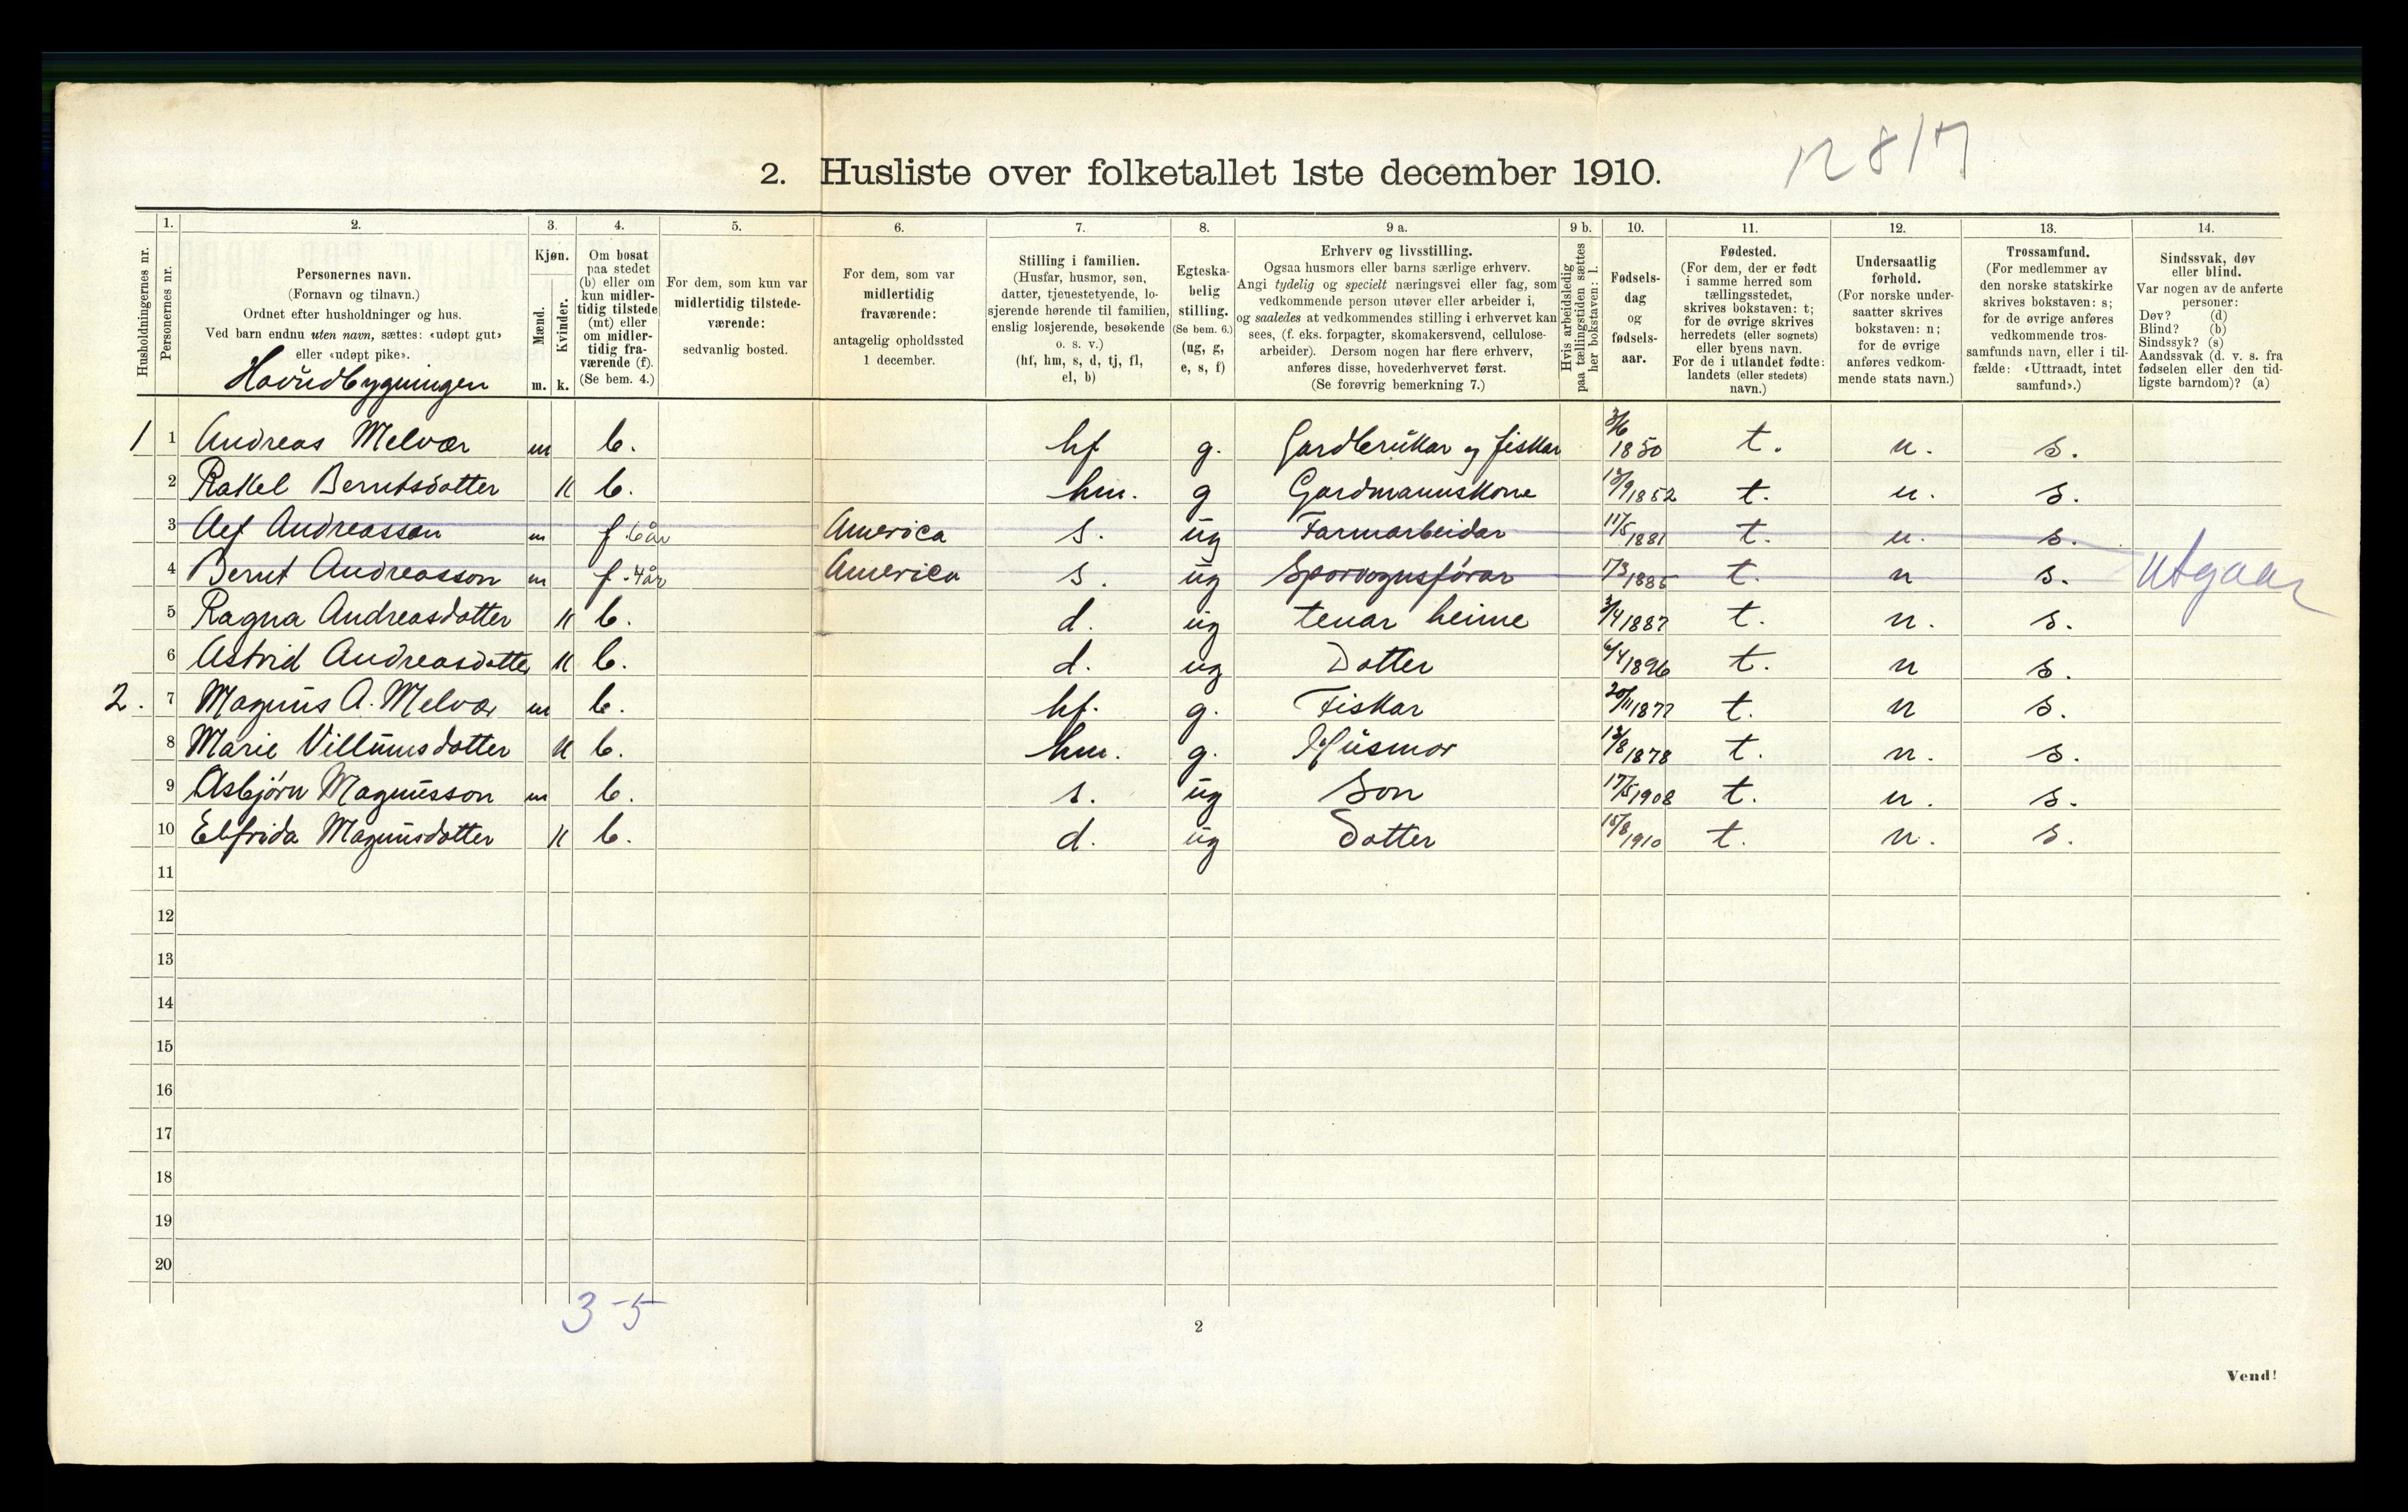 12817
2. Husliste over folketallet 1ste december 1910.
1. 2. 3. 4. 5. 6. 7. 8. 9 a. 9 b. 10. 11. 12. 13. 14.
Husholdningernes nr.
Personernes nr.
Personernes navn.
(Fornavn og tilnavn.)
Ordnet efter husholdninger og hus.
Ved barn endnu uten navn, sættes: «udøpt gut»
eller «udøpt pike».
Hovudbygningen
Kjøn.
Mænd.
Kvinder.
m. k.
Om bosat
paa stedet
(b) eller om
kun midler-
tidig tilstede
(mt) eller
om midler-
tidig fra-
værende (f).
(Se bem. 4.)
For dem, som kun var
midlertidig tilstede-
værende:
sedvanlig bosted.
For dem, som var
midlertidig
fraværende:
antagelig opholdssted
1 december.
Stilling i familien.
(Husfar, husmor, søn,
datter, tjenestetyende, lo-
sjerende hørende til familien,
enslig losjerende, besøkende
o. s. v.)
(hf, hm, s, d, tj, fl,
el, b)
Egteska-
belig
stilling.
(Se bem. 6.)
(ug, g,
e, s, f)
Erhverv og livsstilling.
Ogsaa husmors eller barns særlige erhverv.
Angi tydelig og specielt næringsvei eller fag, som
vedkommende person utøver eller arbeider i,
og saaledes at vedkommendes stilling i erhvervet kan
sees, (f. eks. forpagter, skomakersvend, cellulose-
arbeider). Dersom nogen har flere erhverv,
anføres disse, hovederhvervet først.
(Se forøvrig bemerkning 7.)
Hvis arbeidsledig
paa tællingstiden sættes
her bokstaven: l.
Fødsels-
dag
og
fødsels-
aar.
Fødested.
(For dem, der er født
i samme herred som
tællingsstedet,
skrives bokstaven: t;
for de øvrige skrives
herredets (eller sognets)
eller byens navn.
For de i utlandet fødte:
landets (eller stedets)
navn.)
Undersaatlig
forhold.
(For norske under-
saatter skrives
bokstaven: n;
for de øvrige
anføres vedkom-
mende stats navn.)
Trossamfund.
(For medlemmer av
den norske statskirke
skrives bokstaven: s;
for de øvrige anføres
vedkommende tros-
samfunds navn, eller i til-
fælde: «Uttraadt, intet
samfund».)
Sindssvak, døv
eller blind.
Var nogen av de anførte
personer:
Døv? (d)
Blind? (b)
Sindssyk? (s)
Aandssvak (d. v. s. fra
fødselen eller den tid-
ligste barndom)? (a)
1 1 Andreas Melvær m b. hf g. Gardbrukar og fiskar 3/6 1850 t. n. s.
2 Rakel Berntsdotter k b. hm. g Gardmannskone 13/9 1852 t. n. s.
3 Andreasson m f. 6 år America s. ug Farmarbeidar 11/5 1881 t. n. s.
4 Bernt Andreasson m f. 4 år America s. ug Sporvognsförar 17/3 1885 t. n s. Utgaar
5 Ragna Andreasdotter k b. d. ug tenar heime 3/4 1887 t. n. s.
6 Astrid Andreasdotter k b. d. ug Dotter 6/4 1896 t. n s.
2. 7 Magnus A. Melvær m b. hf. g. Fiskar 20/11 1877 t. n s.
8 Marie Villumsdotter k b. hm. g. Husmor 13/8 1878 t. n. s.
9 Asbjørn Magnusson m b. s. ug Son 17/5 1908 t. n. s.
10 Elfrida Magnusdotter k b. d. ug Dotter 15/8 1910 t. n. s.
11
12
13
14
15
16
17
18
19
20
3-5
2
Vend!